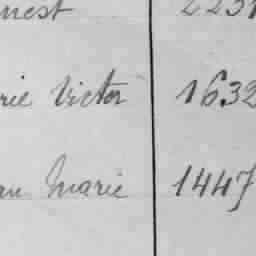 nest 2231
rie Victor 1632
an Marie 1447